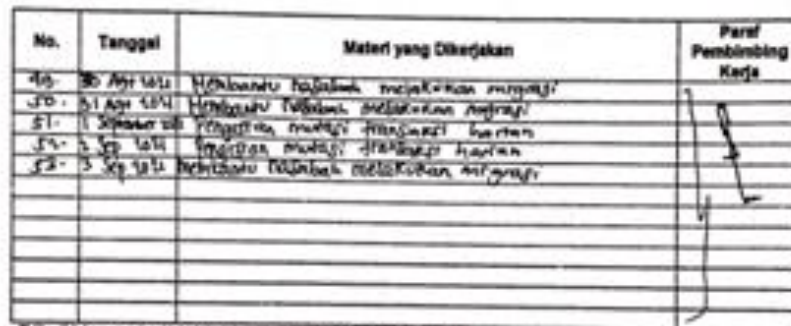 No. Tanggal Materi yang Dikerjakan Paraf Pembimbing Kerja
49. 30 Agt 2021 Membantu nasabah melakukan migrasi
50. 31 Agt 2021 Membantu nasabah melakukan migrasi
51. 1 September 2021 Pengisian mutasi transaksi harian
52. 2 Sep 2021 Pengisian mutasi transaksi harian
53. 3 Sep 2021 Membantu nasabah melakukan migrasi